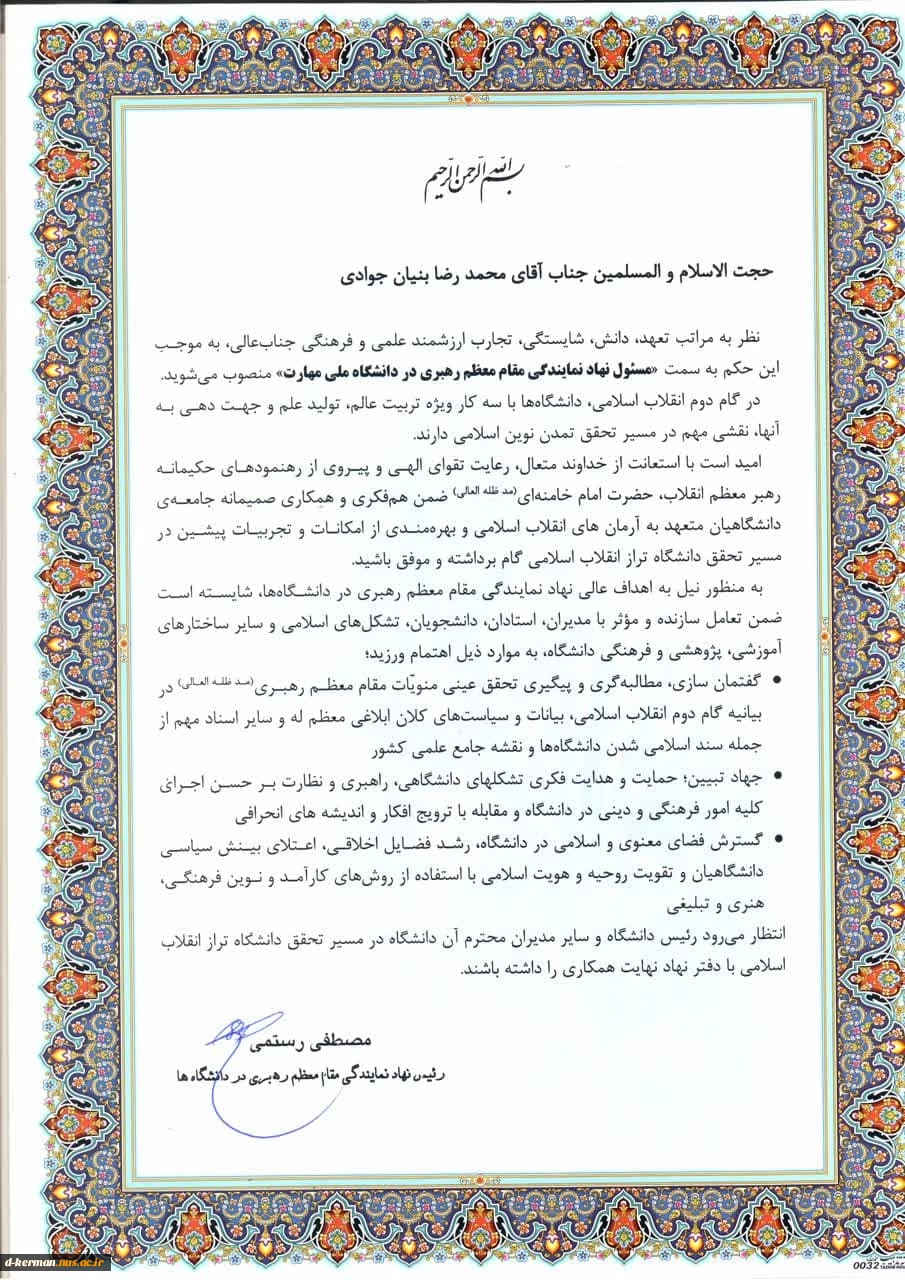 بسم الله الرحمن الرحیم
حجت الاسلام و المسلمین جناب آقای محمد رضا بنیان جوادی
نظر به مراتب تعهد، دانش، شایستگی، تجارب ارزشمند علمی و فرهنگی جناب‌عالی، به موجب
این حکم به سمت «مسئول نهاد نمایندگی مقام معظم رهبری در دانشگاه ملی مهارت» منصوب می‌شوید.
در گام دوم انقلاب اسلامی، دانشگاه‌ها با سه کار ویژه تربیت عالم، تولید علم و جهت دهی به
آنها، نقشی مهم در مسیر تحقق تمدن نوین اسلامی دارند.
امید است با استعانت از خداوند متعال، رعایت تقوای الهی و پیروی از رهنمودهای حکیمانه
رهبر معظم انقلاب، حضرت امام خامنه‌ای(مد ظله العالی) ضمن هم‌فکری و همکاری صمیمانه جامعه‌ی
دانشگاهیان متعهد به آرمان های انقلاب اسلامی و بهره‌مندی از امکانات و تجربیات پیشین در
مسیر تحقق دانشگاه تراز انقلاب اسلامی گام برداشته و موفق باشید.
به منظور نیل به اهداف عالی نهاد نمایندگی مقام معظم رهبری در دانشگاه‌ها، شایسته است
ضمن تعامل سازنده و مؤثر با مدیران، استادان، دانشجویان، تشکل‌های اسلامی و سایر ساختارهای
آموزشی، پژوهشی و فرهنگی دانشگاه، به موارد ذیل اهتمام ورزید؛
• گفتمان سازی، مطالبه‌گری و پیگیری تحقق عینی منویّات مقام معظم رهبری(مد ظله العالی) در
بیانیه گام دوم انقلاب اسلامی، بیانات و سیاست‌های کلان ابلاغی معظم له و سایر اسناد مهم از
جمله سند اسلامی شدن دانشگاه‌ها و نقشه جامع علمی کشور
• جهاد تبیین؛ حمایت و هدایت فکری تشکلهای دانشگاهی، راهبری و نظارت بر حسن اجرای
کلیه امور فرهنگی و دینی در دانشگاه و مقابله با ترویج افکار و اندیشه های انحرافی
• گسترش فضای معنوی و اسلامی در دانشگاه، رشد فضایل اخلاقی، اعتلای بینش سیاسی
دانشگاهیان و تقویت روحیه و هویت اسلامی با استفاده از روش‌های کارآمد و نوین فرهنگی،
هنری و تبلیغی
انتظار می‌رود رئیس دانشگاه و سایر مدیران محترم آن دانشگاه در مسیر تحقق دانشگاه تراز انقلاب
اسلامی با دفتر نهاد نهایت همکاری را داشته باشند.
مصطفی رستمی
رئیس نهاد نمایندگی مقام معظم رهبری در دانشگاه ها
d-kerman.nus.ac.ir
0032